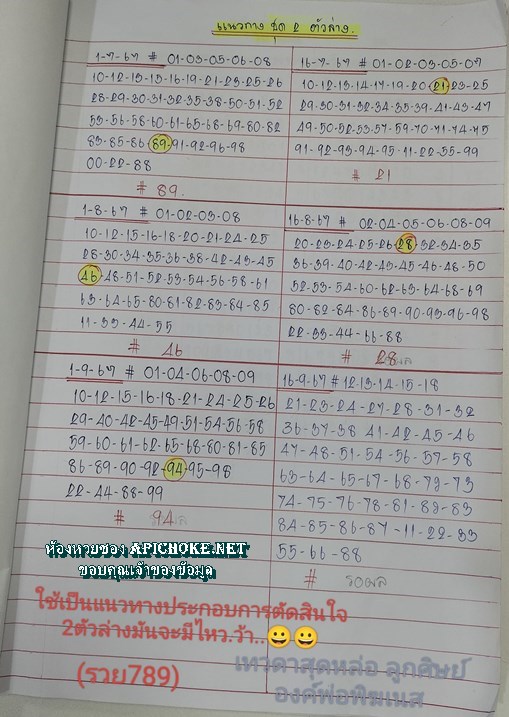 แนวทาง ชุด 2 ตัวล่าง.
1-7-67 # 01-03-05-06-08
10-12-13-15-16-19-21-23-25-26
28-29-30-31-32-35-38-50-51-52
53-56-58-60-61-65-68-69-80-82
83-85-86-89-91-92-96-98
00-22-88
# 89.
16-7-67 # 01-02-03-05-07
10-12-13-14-17-19-20-21-23-25
29-30-31-32-34-35-39-41-43-47
49-50-52-53-57-59-70-71-74-75
91-92-93-94-95-11-22-55-99
# 21
1-8-67 # 01-02-03-08
10-12-15-16-18-20-21-24-25
28-30-34-35-36-38-42-43-45
46-48-51-52-53-54-56-58-61
63-64-65-80-81-82-83-84-85
11-33-44-55
# 46
16-8-67 # 02-04-05-06-08-09
20-23-24-25-26-28-32-34-35
36-39-40-42-43-45-46-48-50
52-53-54-60-62-63-64-68-69
80-82-84-86-89-90-93-96-98
22-33-44-66-88
# 28
1-9-67 # 01-04-06-08-09
10-12-15-16-18-21-24-25-26
29-40-42-45-49-51-54-56-58
59-60-61-62-65-68-80-81-85
86-89-90-92-94-95-98
22-44-88-99
# 94
16-9-67 # 12-13-14-15-18
21-23-24-27-28-31-32
36-37-38 41-42-45-46
47-48-51-54-56-57-58
63-64-65-67-68-72-73
74-75-76-78-81-82-83
84-85-86-87-11-22-33
55-66-88
# รอผล
ห้องหวยซอง APICHOKE.NET
ขอบคุณเจ้าของข้อมูล
ใช้เป็นแนวทางประกอบการตัดสินใจ
2ตัวล่างมันจะมีไหว.ว้า..😀😀
(รวย789)
เทวดาสุดหล่อ ลูกศิษย์
องค์พ่อพิฆเนส